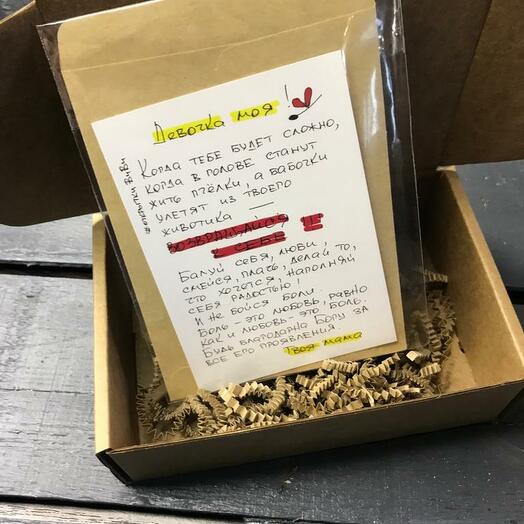 Девочка моя!
#открытки ВиВи
Когда тебе будет сложно,
когда в голове станут
жить пчёлки, а бабочки
улетят из твоего
животика —
возвращайся
к себе
Балуй себя, люби,
смейся, плачь, делай то,
что хочется, наполняй
себя радостью!
И не бойся боли.
Боль - это любовь, равно
как и любовь - это боль.
Будь благодарна Богу за
все его проявления.
Твоя мама